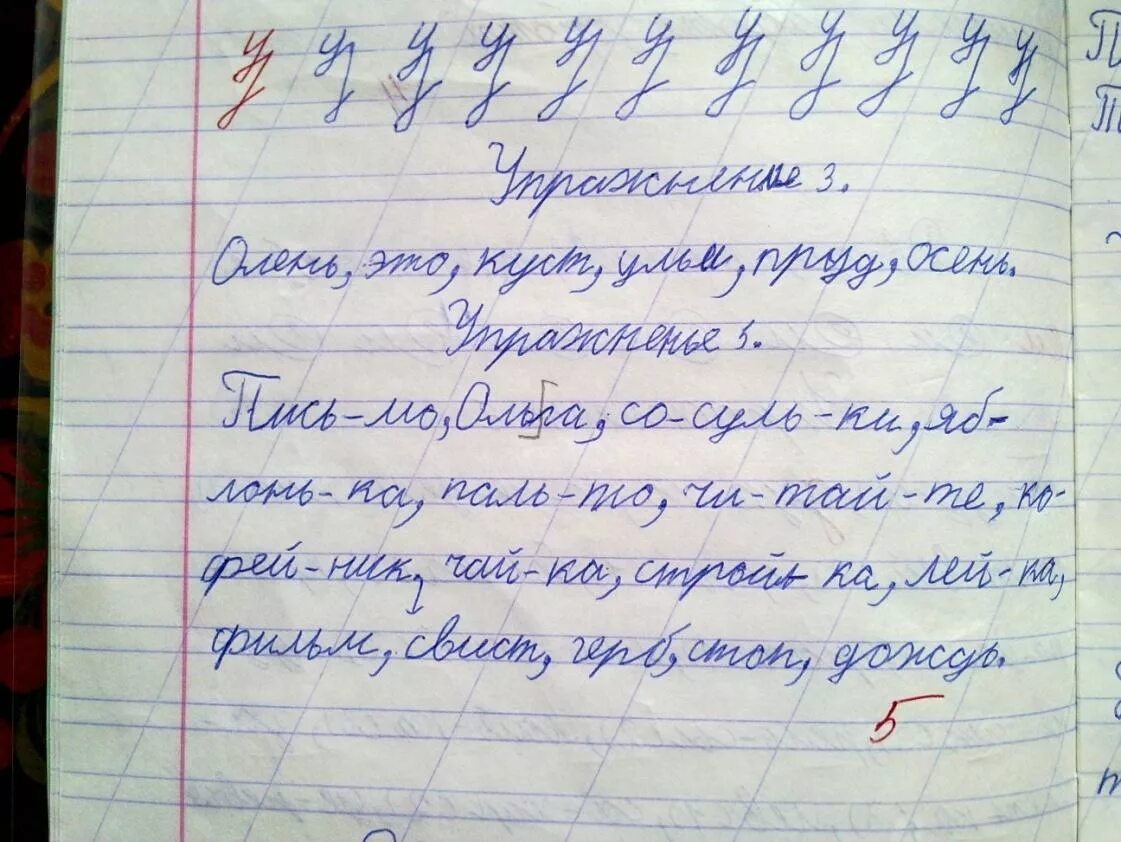 у у у у у у у у у у у
Упражнение 3.
Олень, это, куст, ульи, пруд, осень.
Упражненье 5.
Пись-мо, Ольга, со-суль-ки, яб-
лонь-ка, паль-то, чи-тай-те, ко-
фей-ник, чай-ка, строй-ка, лей-ка,
фильм, свист, герб, стоп, дождь.
5